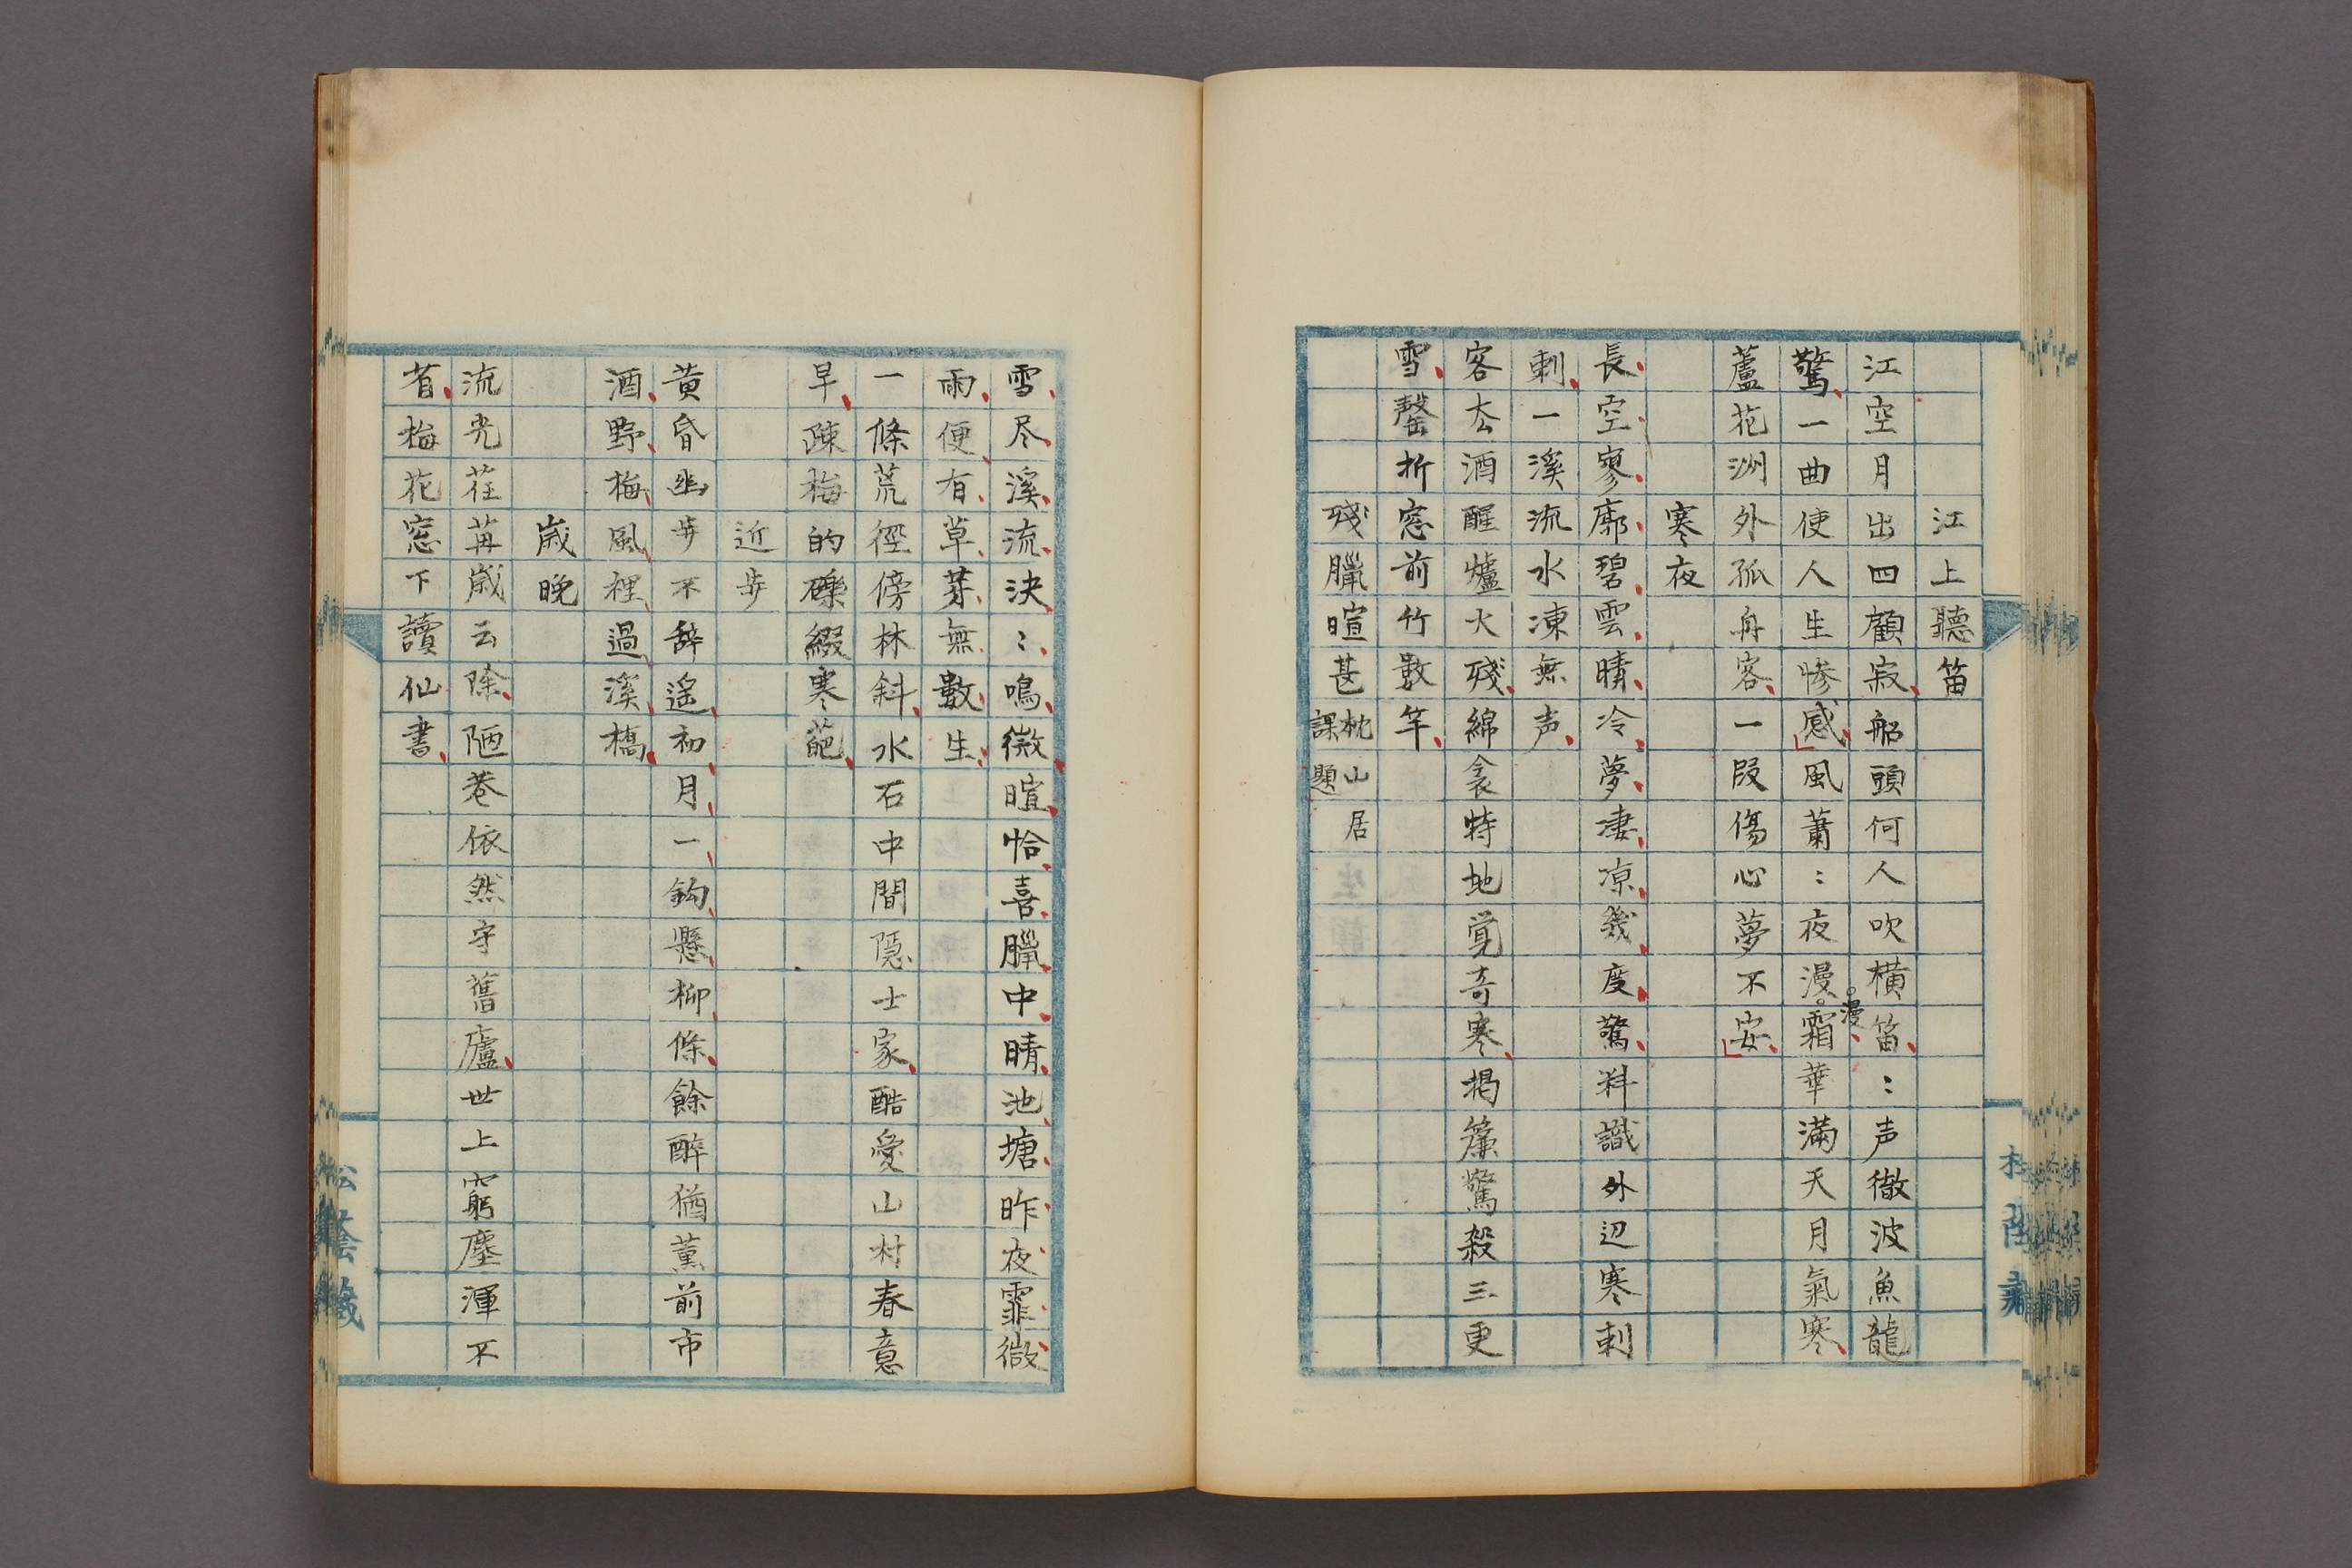 江上聽笛
江空月出四顧寂船頭何人吹橫笛〻声徹波魚龍
驚一曲使人生慘感風蕭〻夜漫漫霜華滿天月氣寒
蘆花洲外孤舟客一段傷心夢不安
寒夜
長空寥廓碧雲晴冷夢凄凉幾度驚料識外辺寒刺
刺一溪流水凍無声
客去酒醒爐火殘綿衾特地覚奇寒掲簾驚殺三更
雪罄折窓前竹數竿
殘臘暄甚枕山居課題
雪尽溪流決〻鳴微暄恰喜臘中晴池塘昨夜霏微
雨便有草芽無數生
一條荒徑傍林斜水石中間隠士家酷愛山村春意
早疎梅的礫綴寒葩
近歩
黄昏幽歩不辞遙初月一鈎懸柳條餘醉猶薫前市
酒野梅風裡過溪橋
歳晩
流光荏苒歳云除陋巷依然守舊廬世上窮塵渾不
省梅花窓下讀仙書
松蔭